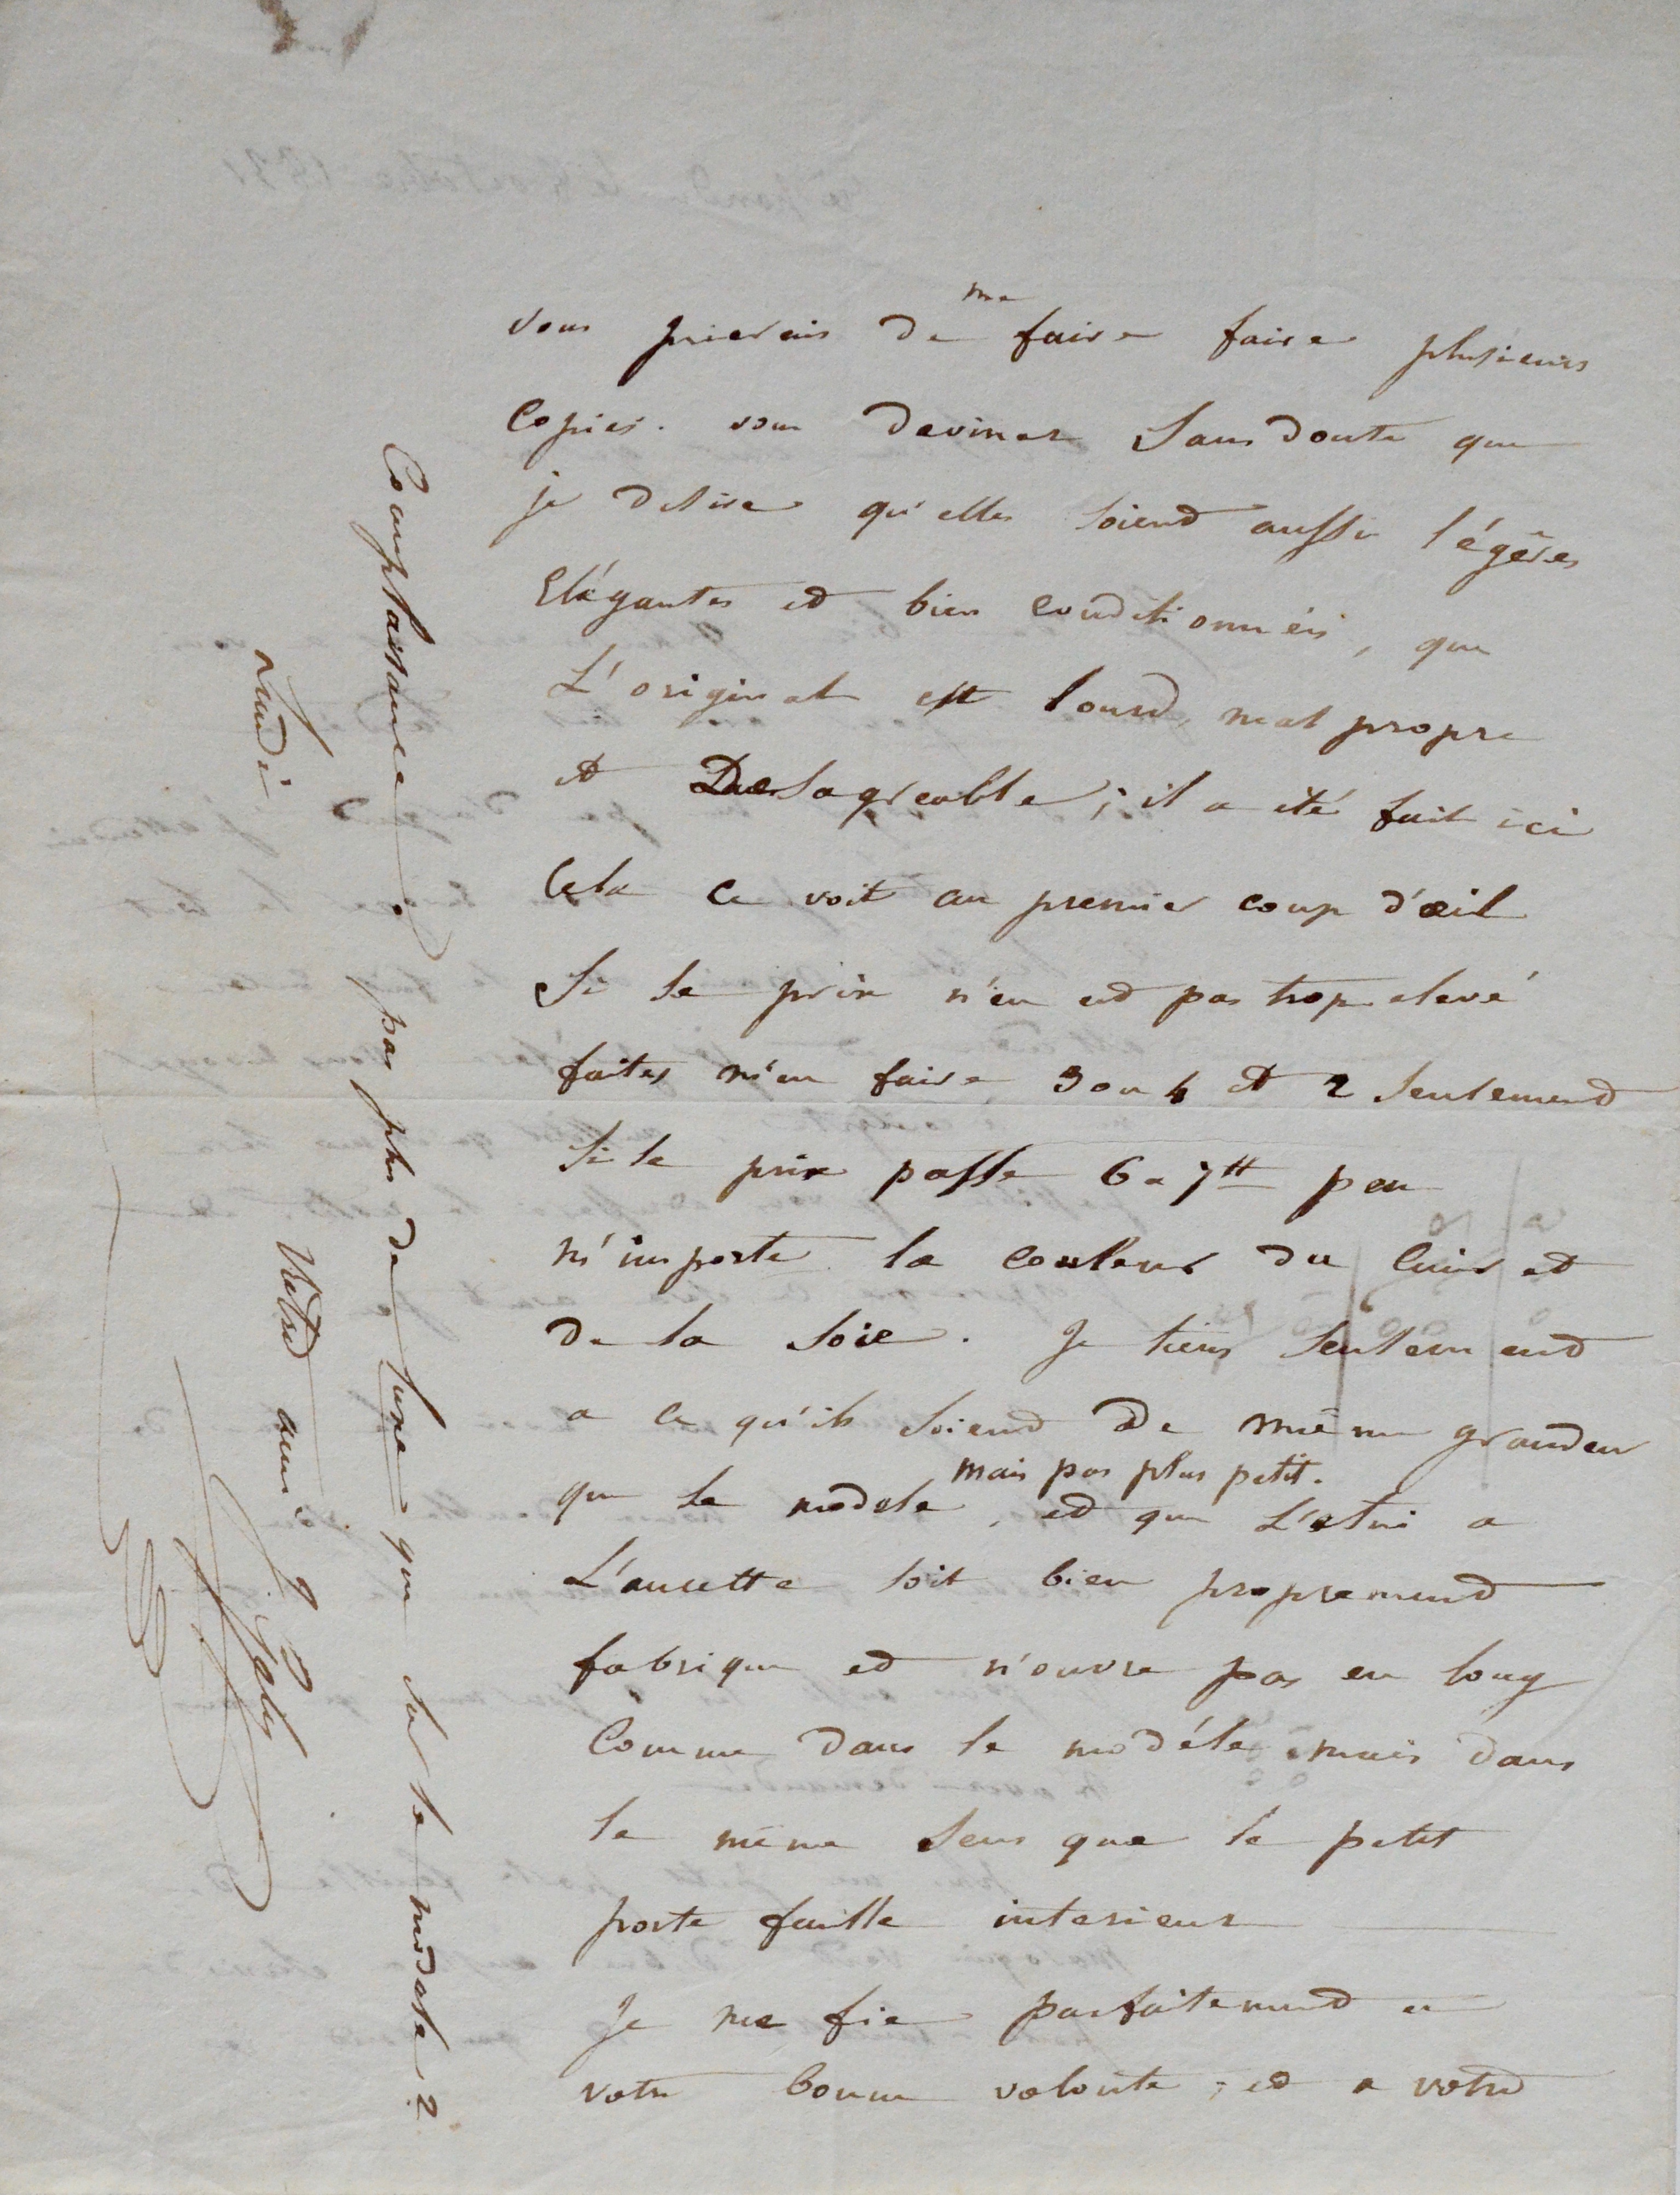 vous prierais de me faire faire plusieurs
Copies. vous devinez Sans doute que
je desire qu'elles soient aussi légères
Elégantes et bien conditionnées, que
L'original est lourd, mal propre
et Desagreable; il a été fait ici
Cela ce voit au premier coup d'œil
Si le prix n'en est pas trop elevé
faites m'en faire 3 ou 4 et 2 Seulement
Si le prix passe 6 a 7tt peu
m'importe la couleur du Cuir et
de la Soie. Je tiens Seulement
a ce qu'ils soient de même grandeur
mais pas plus petit.
que le modele, et que L'etui a
L'ancette soit bien proprement
fabrique et n'ouvre pas en long
Comme dans le modéle mais dans
le même sens que le petit
porte feuille interieur
Je me fie parfaitement a
votre bonne volonte; et a votre
Complaisance. pas plus de lune que sur le modele?
Lundi Votre ami